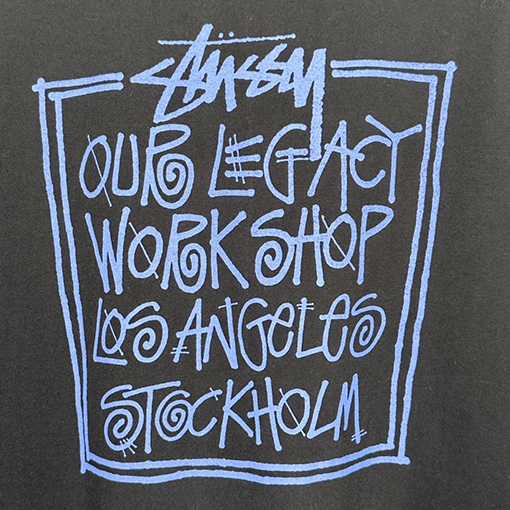 Stüssy
OUR LEGACY
WORK SHOP
LOS ANGELES
STOCKHOLM